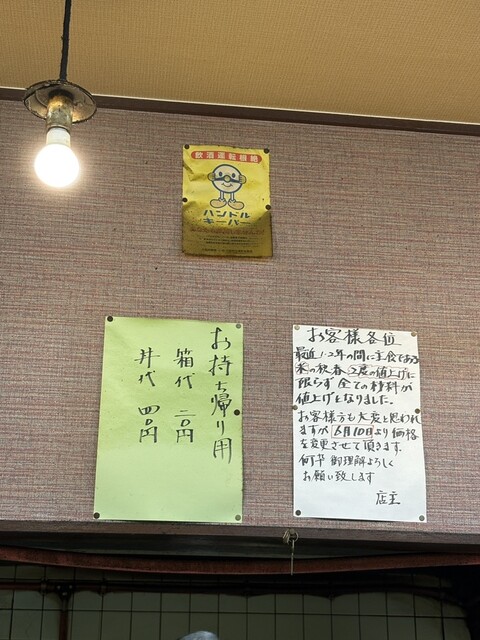 飲酒運転根絶
ハンドル
キーパー
お持ち帰り用
箱代 二〇円
丼代 四〇円
お客様各位
最近1・2年の間に主食である
米の秋春2度の値上げに
限らず全ての材料が
値上げとなりました。
お客様方も大変と思われ
ますが6月10日より価格
を変更させて頂きます。
何卒御理解よろしく
お願い致します
店主